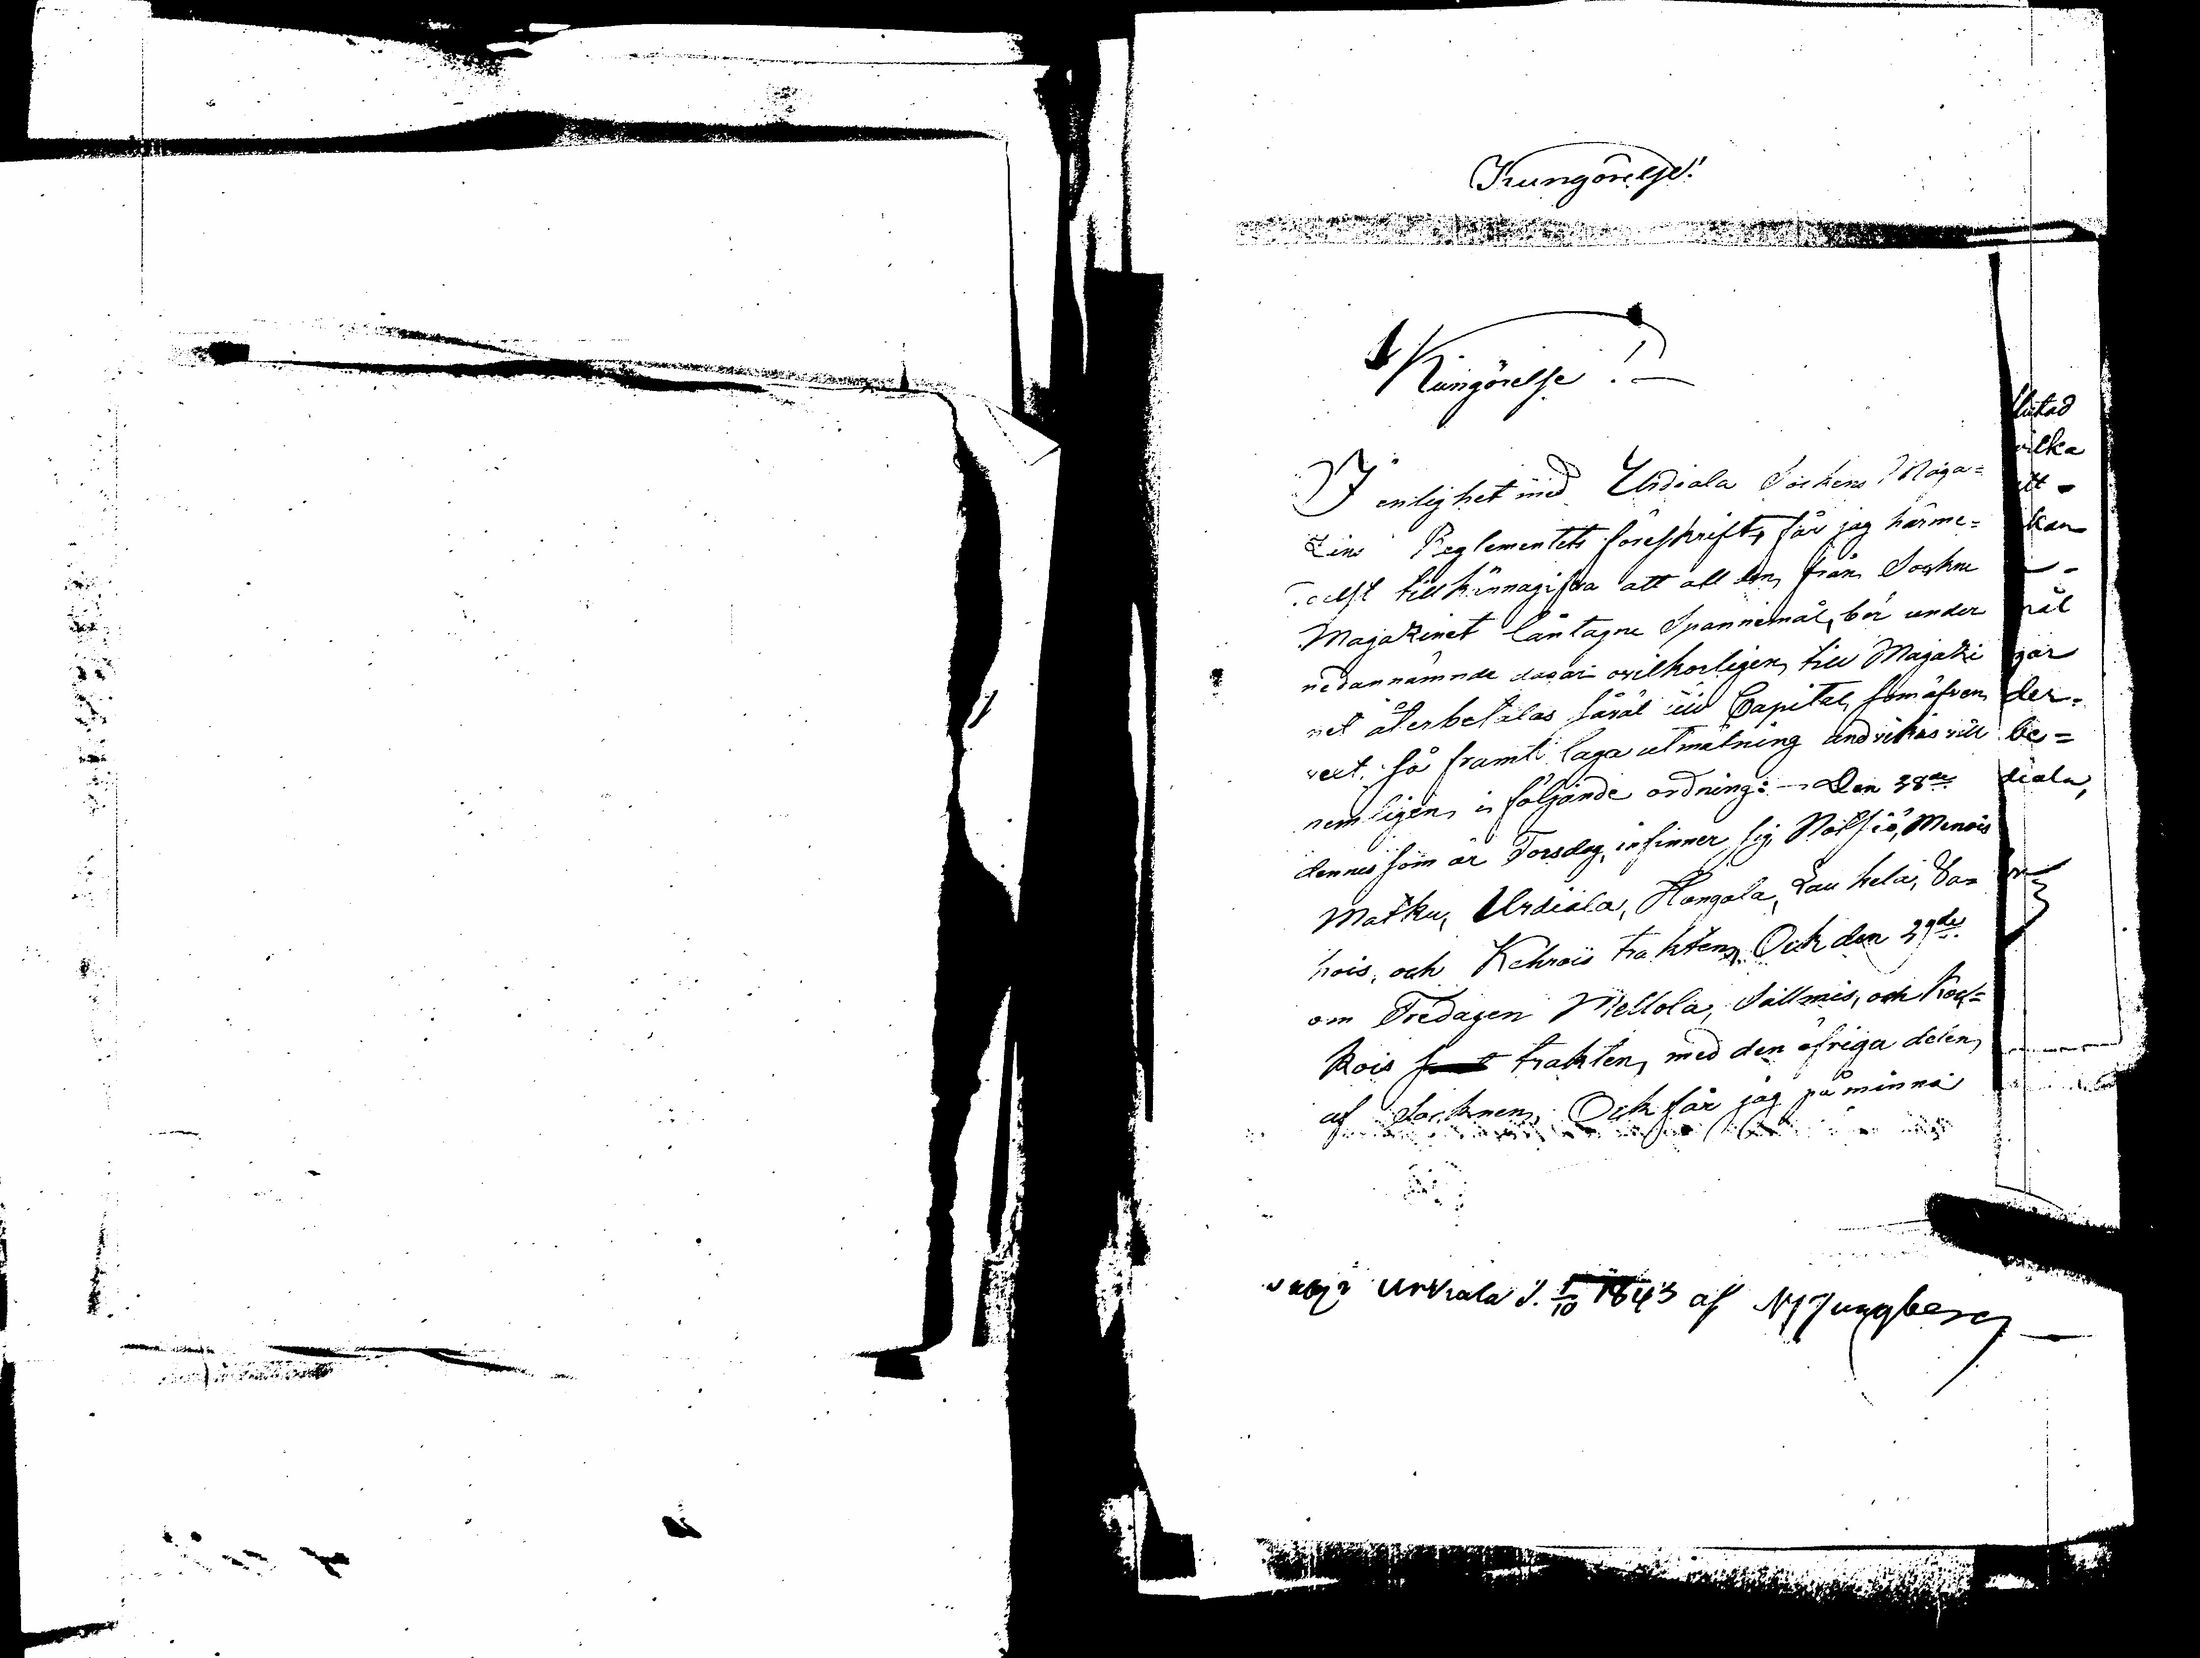 Kungörelse!
Kungörelse!
I enlighet med Urdiala Sockens Maga=
Zins Reglementets föreskrift, får jag härme=
delst tillkännagifva att all den från Sockne
Magazinet låntagne Spannemål, bör under
nedannämnde dagar ovilkorligen till Magazi
net återbetalas såväl till Capital som äfven
vext. så framt laga utmätning undvikas vill
nemligen i följande ordning: - Den 28de
dennes som är Torsdag, infinner sig Nötsiö, Menois
Matku, Urdiala, Hangola, Laukela, Va=
hois, och Kehrois trakten, Och den 29de
om Fredagen Mellola, Sallmis, och Kos=
kois trakten, med den öfriga delen
af Socknen, Och får jag påminna
slutad
vilka
att -
kan
mål
gar
der=
be=
diala,
Urdiala d. 1/10 1843 af N Ljungberg